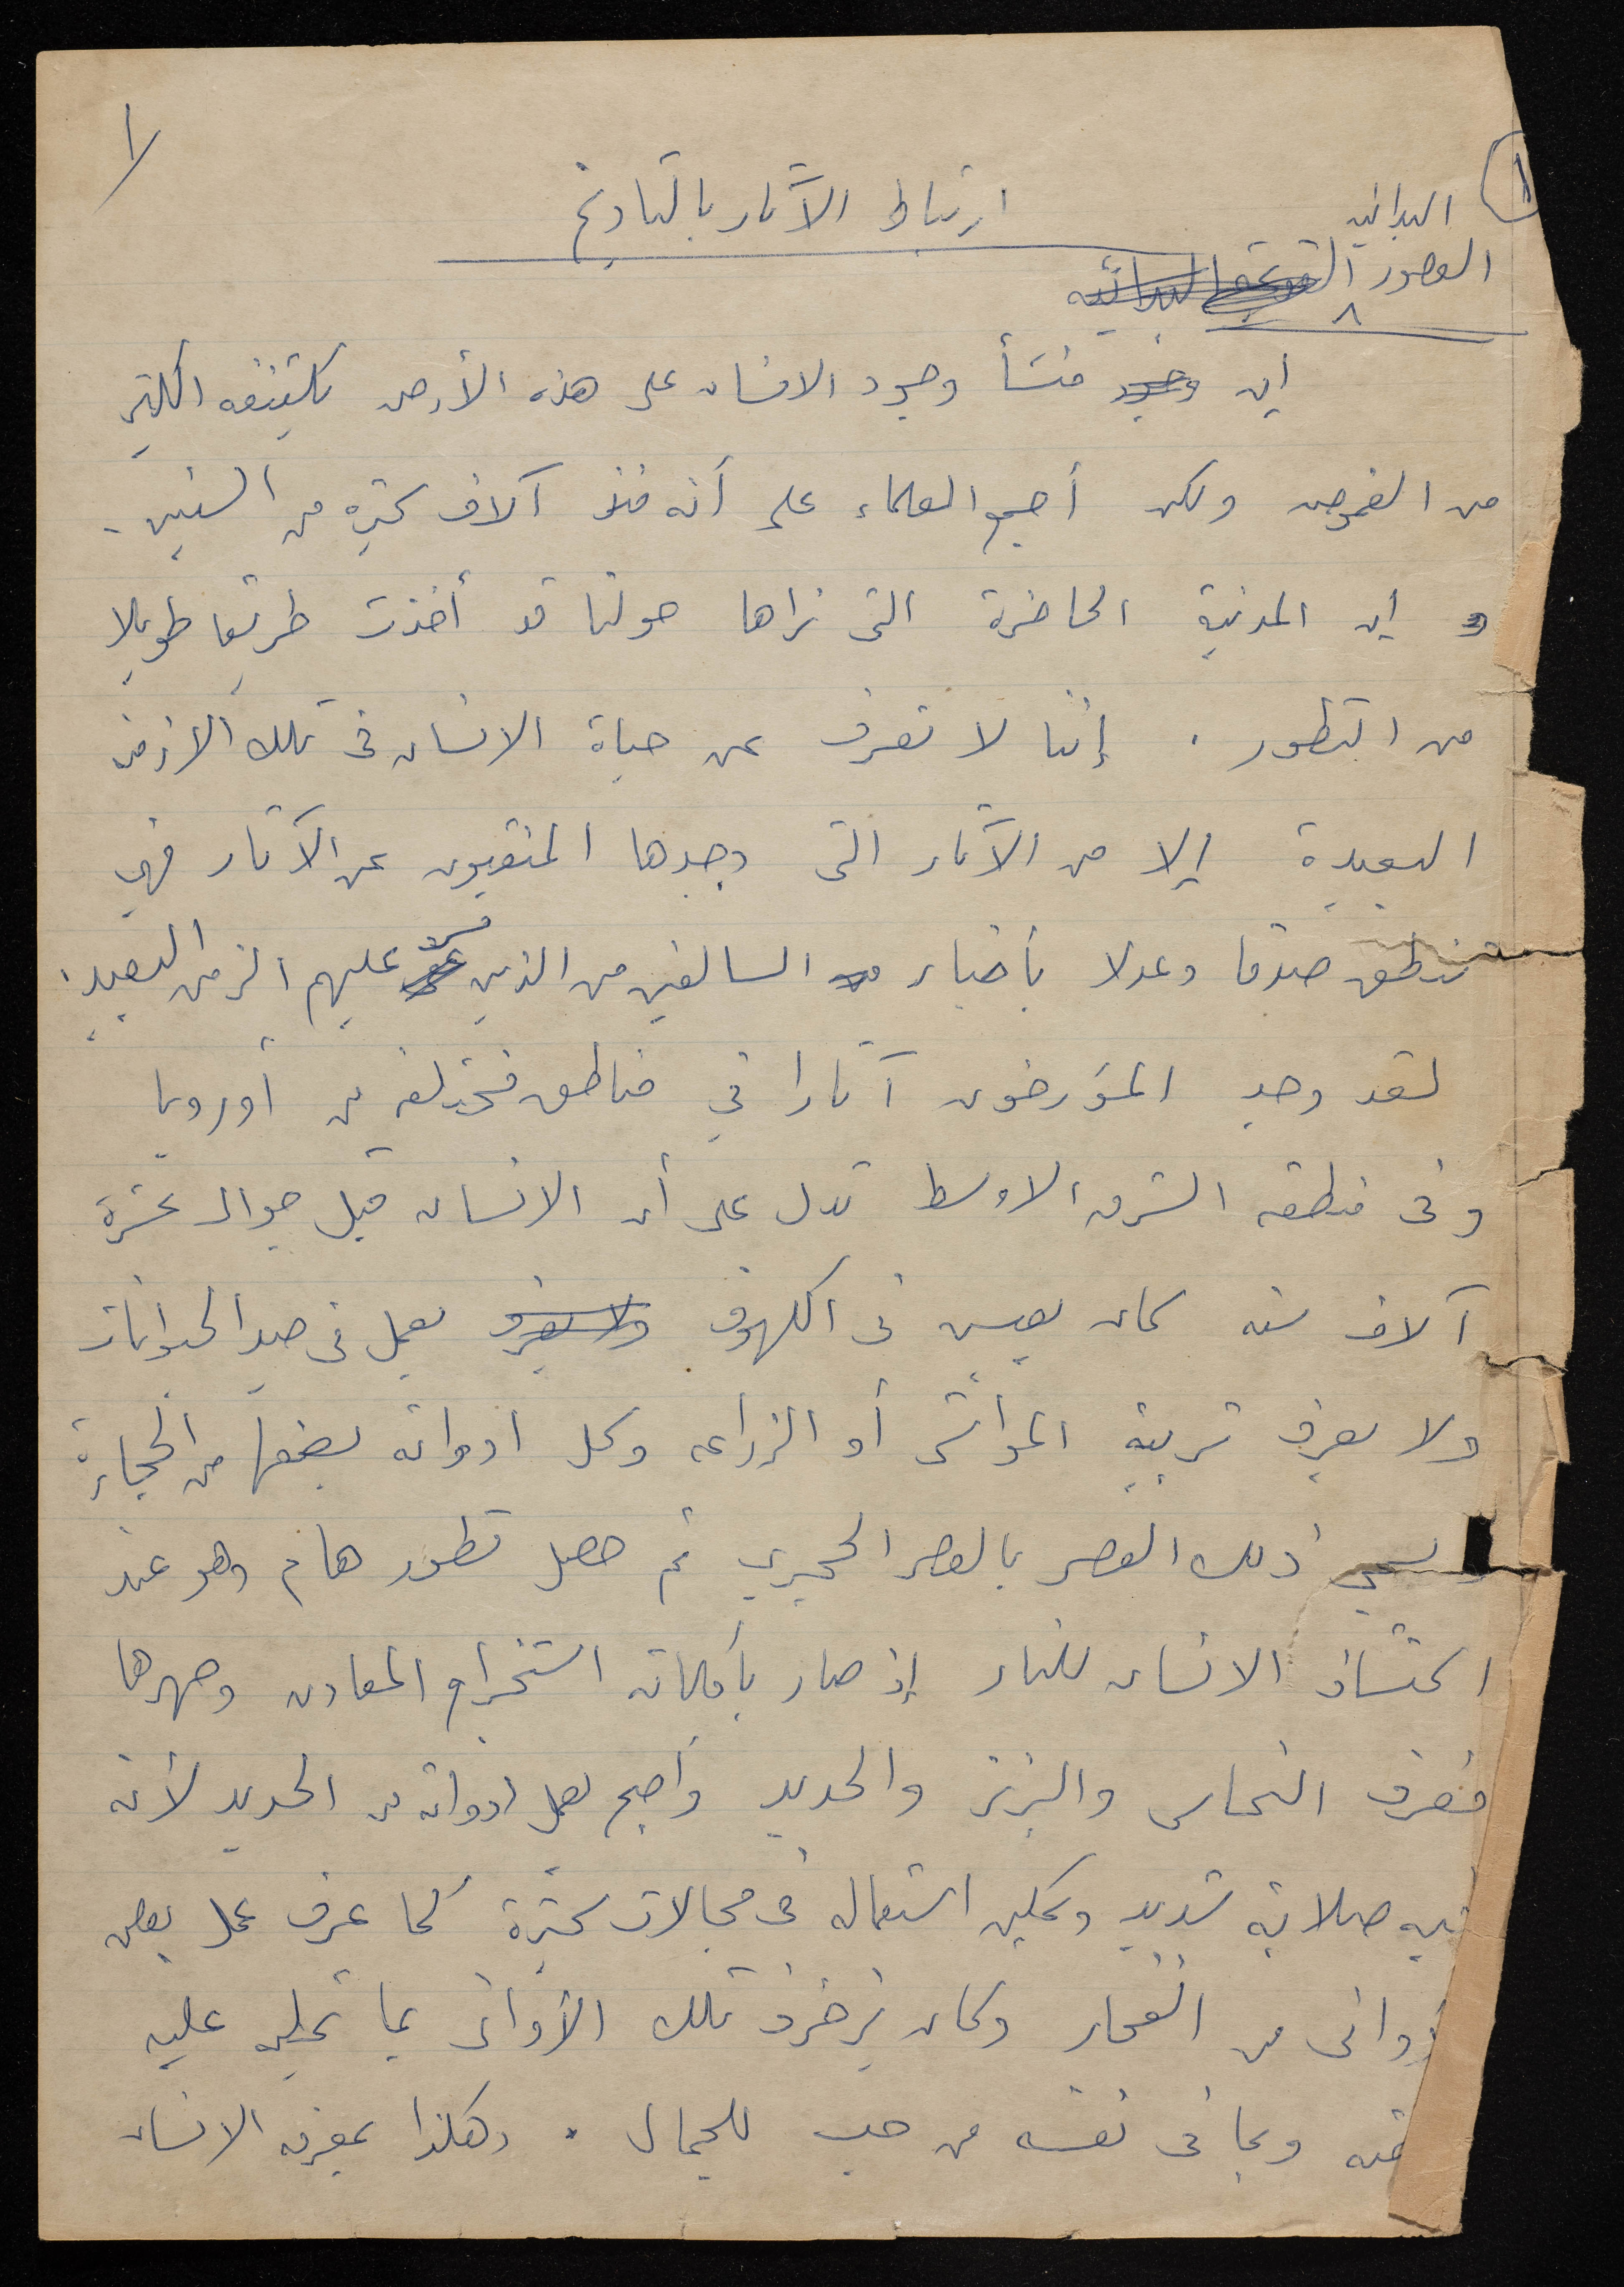 ١
١
ارتباط الآثار بالتاريخ
البدائيه
العصور القديمة البدائيه
إن وجود منشأ وجود الانسان على هذه الأرض يكتنفه الكثير
من الغموض ولكن أجمع العلماء على أنه منذ آلاف كثيره من السنين .
و إن المدنية الحاضرة التى نراها حولنا قد أخذت طريقا طويلا
من التطور . إننا لا نعرف عن حياة الانسان فى تلك الازمنه
البعيدة إلا من الآثار التى وجدها المنقبون عن الآثار فهي
تنطق صدقا وعدلا بأخبار السالفين من الذين مر عليهم الزمن البعيد .
لقد وجد المؤرخون آثارا في مناطق مختلفه من أوروبا
وفى منطقه الشرق الاوسط تدل على أن الانسان قبل حوالى عشرة
آلاف سنه كان يعيش فى الكهوف ولا يعرف يعمل فى صيد الحيوانات
ولا يعرف تربية المواشى أو الزراعه وكل ادواته يصنعها من الحجارة
ويسمي ذلك العصر بالعصر الحجري ثم حصل تطور هام وهو عند
اكتشاف الانسان للنار إذ صار بأمكانه استخراج المعادن وصهرها
فعرف النحاس والبرنز والحديد وأصبح يعمل ادواته من الحديد لأنه
فيه صلابة شديد ويمكن استعماله فى مجالات كثيرة كما عرف عمل بعض
وانى من الفخار وكان يزخرف تلك الأوانى بما تمليه عليه
قته وبما فى نفسه من حب للجمال . وهكذا بمعرفه الانسان